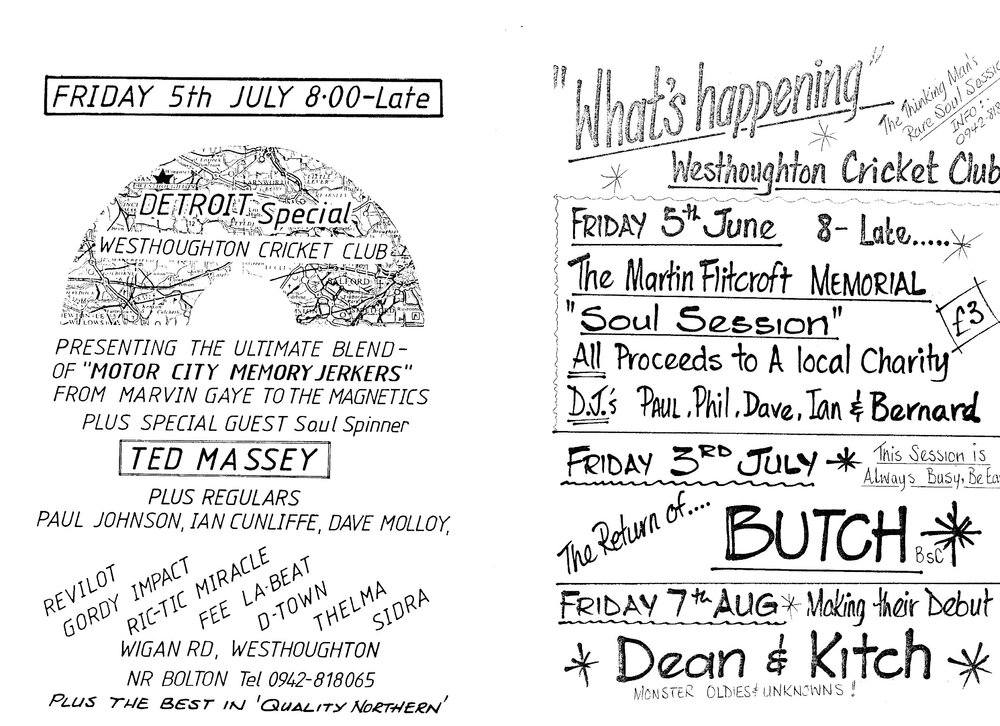 FRIDAY 5th JULY 8·00-Late
DETROIT Special
WESTHOUGHTON CRICKET CLUB
PRESENTING THE ULTIMATE BLEND-
OF "MOTOR CITY MEMORY JERKERS"
FROM MARVIN GAYE TO THE MAGNETICS
PLUS SPECIAL GUEST Soul Spinner
TED MASSEY
PLUS REGULARS
PAUL JOHNSON, IAN CUNLIFFE, DAVE MOLLOY,
REVILOT
GORDY IMPACT
RIC-TIC MIRACLE
FEE LA-BEAT
D-TOWN
THELMA
SIDRA
WIGAN RD, WESTHOUGHTON
NR BOLTON Tel 0942-818065
PLUS THE BEST IN 'QUALITY NORTHERN'
"What's happening"
The Thinking Man's
Rare Soul Sessio
INFO:-
0942-818
Westhoughton Cricket Club
FRIDAY 5th June 8- Late.....
The Martin Flitcroft MEMORIAL
"Soul Session"
£3
All Proceeds to A local Charity
D.J.'s PAUL, Phil, Dave, Ian & Bernard
FRIDAY 3RD JULY
This Session is
Always Busy, Be Ea
The Return of....
BUTCH BSC
FRIDAY 7th AUG Making their Debut
Dean & Kitch
MONSTER OLDIES & UNKNOWNS!